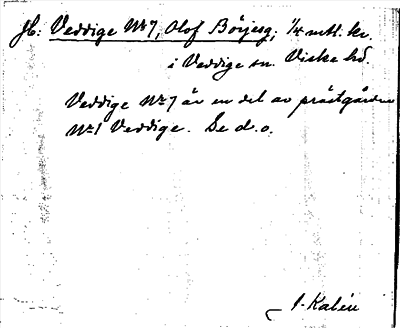 Jb: Veddige Nr 7, Olof Börjesg, 1/4 mtl. kr.
i Veddige sn. Viske hd.
Veddige Nr 7 är en del av prästgården
Nr 1 Veddige. Se d.o.
I. Kalén